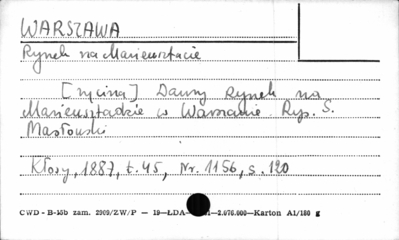 WARSZAWA
Rynek na Mariensztacie
[rycina] Dawny Rynek na
Mariensztadzie w Warszawie. Rys. S.
Masłowski
Kłosy, 1887, t. 45, Nr. 1156, s. 120
CWD - B-15b zam. 2909/ZW/P — 19—ŁDA- —2.076.000—Karton A1/180 g